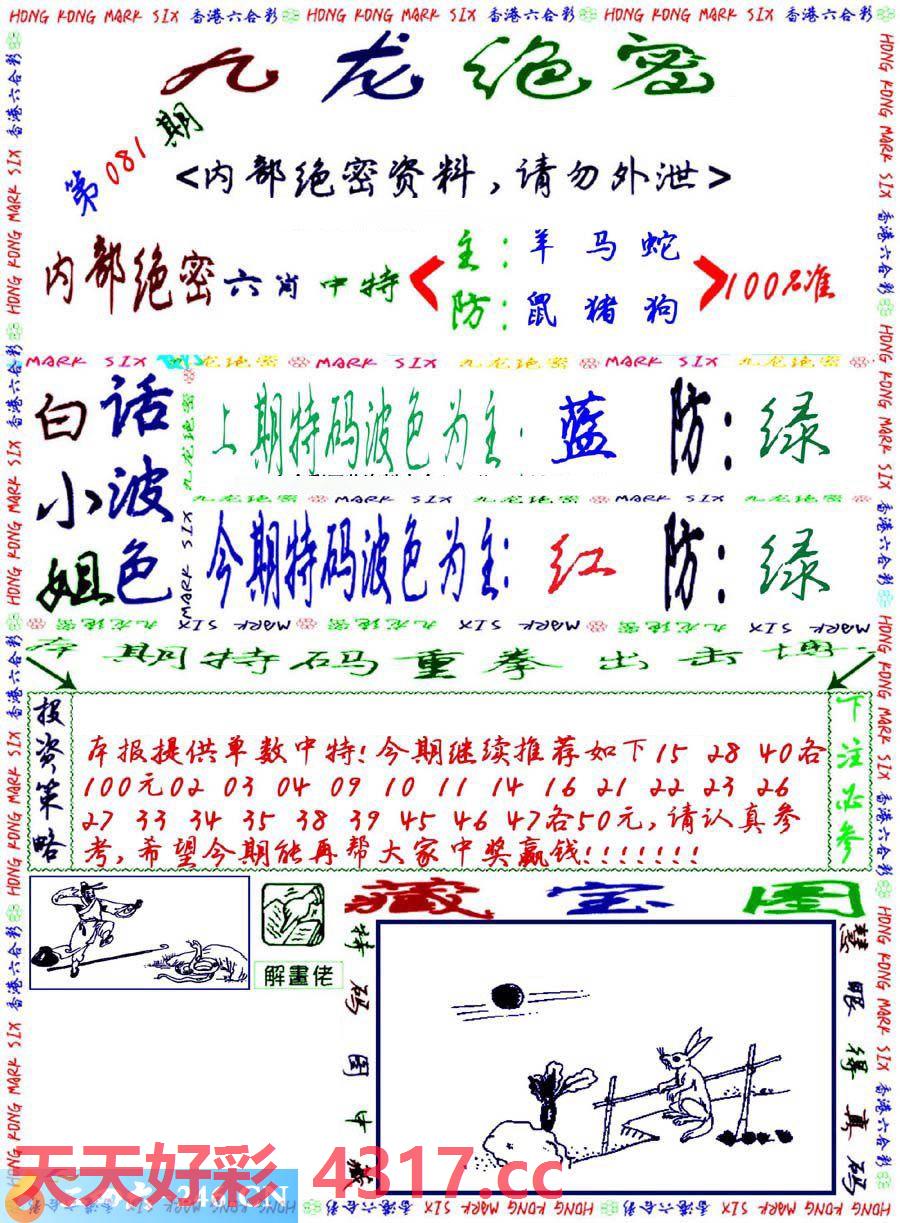 HONG KONG MARK SIX 香港六合彩 HONG KONG MARK SIX 香港六合彩 HONG KONG MARK SIX 香港六合彩
九龙绝密
第081期
<内部绝密资料,请勿外泄>
内部绝密六肖中特
主:羊马蛇
防:鼠猪狗
100%准
MARK SIX 九龙绝密 MARK SIX 九龙绝密 MARK SIX 九龙绝密
白话小波姐色
上期特码波色为主:蓝 防:绿
九龙绝密 MARK SIX 九龙绝密 MARK SIX 九龙绝密
今期特码波色为主:红 防:绿
MARK SIX 九龙绝密 MARK SIX 九龙绝密 MARK SIX 九龙绝密 MARK SIX
本期特码重拳出击
投资策略
本报提供单数中特!今期继续推荐如下15 28 40各
100元02 03 04 09 10 11 14 16 21 22 23 26
27 33 34 35 38 39 45 46 47各50元,请认真参
考,希望今期能再帮大家中奖赢钱!!!!!!!
下注必参
藏宝图
解畫佬
特码图中
慧眼得真码
天天好彩 4317.cc
246.CN
HONG KONG MARK SIX 香港六合彩